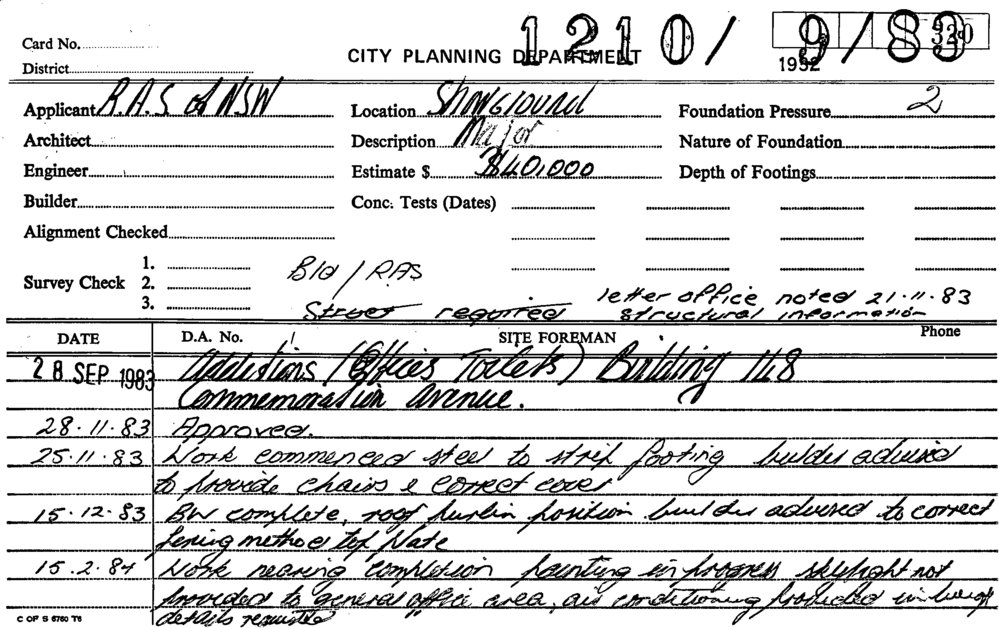 1210/ 9/83
320
1982
Card No.
CITY PLANNING DEPARTMENT
District
Applicant R.A.S of NSW Location Showground Foundation Pressure 2
Architect Description Major Nature of Foundation
Engineer Estimate $ $40,000 Depth of Footings
Builder Conc. Tests (Dates)
Alignment Checked
Survey Check 1.
2.
3.
Bld / RAS
letter office noted 21.11.83
Street required structural information
DATE D.A. No. SITE FOREMAN Phone
28 SEP 1983 Additions (Offices Toilets) Building 148
Commemoration Avenue.
28.11.83 Approved.
25.11.83 Work commenced steel to strip footing builder advised
to provide chairs & correct cover
15.12.83 BW complete, roof purlin position builder advised to correct
fixing method top plate
15.2.84 Work nearing completion painting in progress skylight not
provided to general office area, air conditioning provided in lieu of
details requested
C OF S 6760 T6